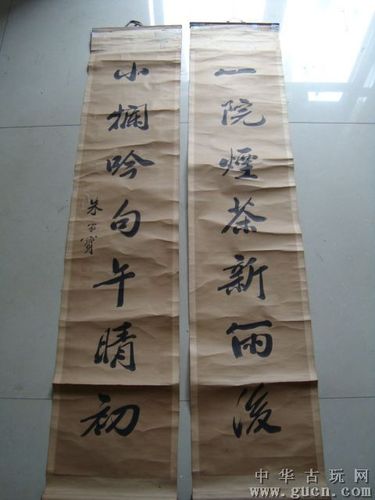 一院煙茶新雨後
小欄吟句午晴初
朱家寶
中华古玩网
www.gucn.com